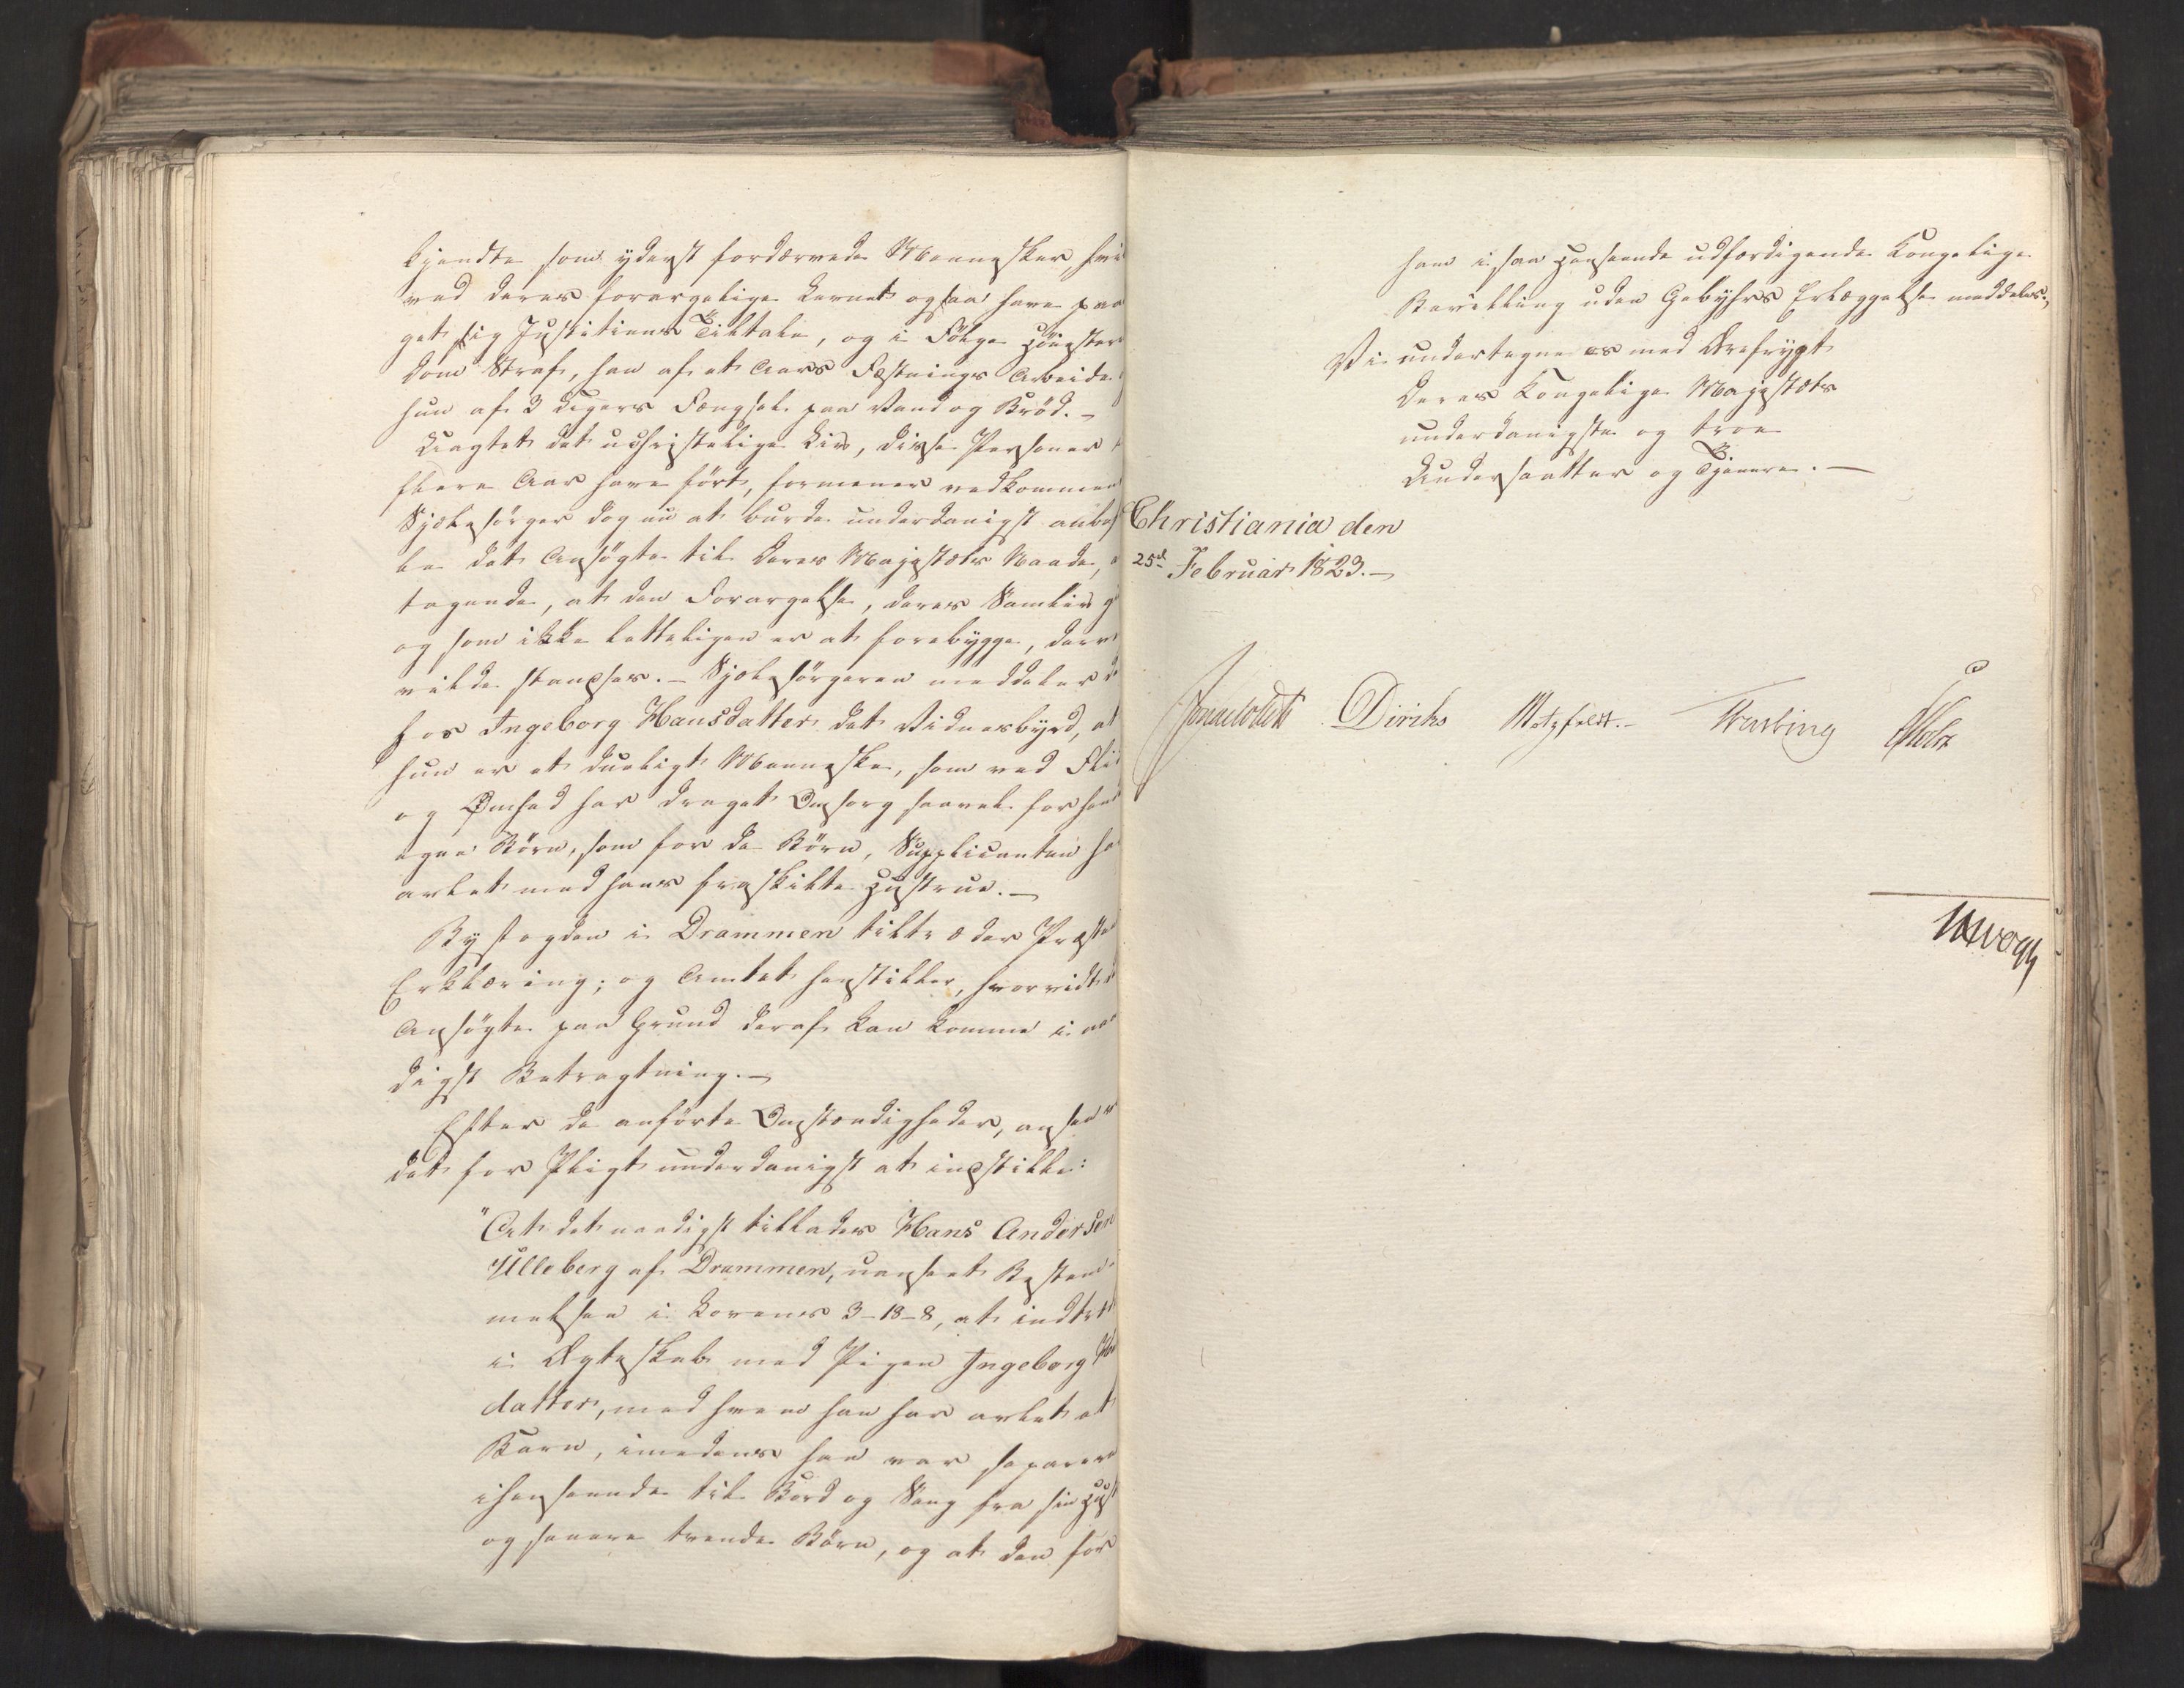 kjendte som yderst fordærvede Mennesker hvi
ved deres forargelige Levnet ogsaa have paa
get sig Justitiens Tiltale, og i Følge Høieste
dom Straf, han af et Aars Fæstnings Arbeide
hun af 3 Dages Fængsel paa Vand og Brød. –
Uagtet det uchristelige Liv, disse Personer i
flere Aar have ført, formener vedkommen
Sjælesørger dog nu at burde underdanigst anbef
le det Ansøgte til Deres Majestæts Naade,
tagende, at den Forargelse, deres Samliv g
og som ikke letteligen er at forebygge, derv
vilde standses. – Sjælesørgeren meddeler de
hos Ingeborg Hansdatter det Vidnesbyrd, at
hun er et dueligt Menneske, som ved Flii
og Ømhed har draget Omsorg saavel for hend
egne Børn, som for de Børn, Supplicanten ha
avlet med hans fraskilte Hustrue. –
Byfogden i Drammen tiltræder Præste
Erklæring; og Amtet henstiller, hvorvidt d
Ansøgte paa Grund deraf kan komme i naa
digst Betragtning. –
Efter de anførte Omstændigheder, ansees
det for Pligt underdanigst at indstille:
"At det naadigst tillades Hans Andersen
Ulleberg af Drammen, uanseet Bestem
melsen i Lovens 3-18-8, at indtræ
i Ægteskab med Pigen Ingeborg Ha
datter, med hvem han har avlet et
Barn, imedens han var separere
ihenseende til Bord og Seng fra sin Hust
og senere trende Børn, og at den for
ham i saa Henseende udfærdigende Kongelige
Bevilling uden Gebyhrs Erlæggelse meddeles.,
Vi undertegne os med Ærefrygt
Deres Kongelige Majestæts
underdanigste og troe
Undersaatter og Tjenere. –
Christiania den
25d Februar 1823. –
Sommerfeldt Diriks Motzfeldt. – Treschow Holst
JHVogt